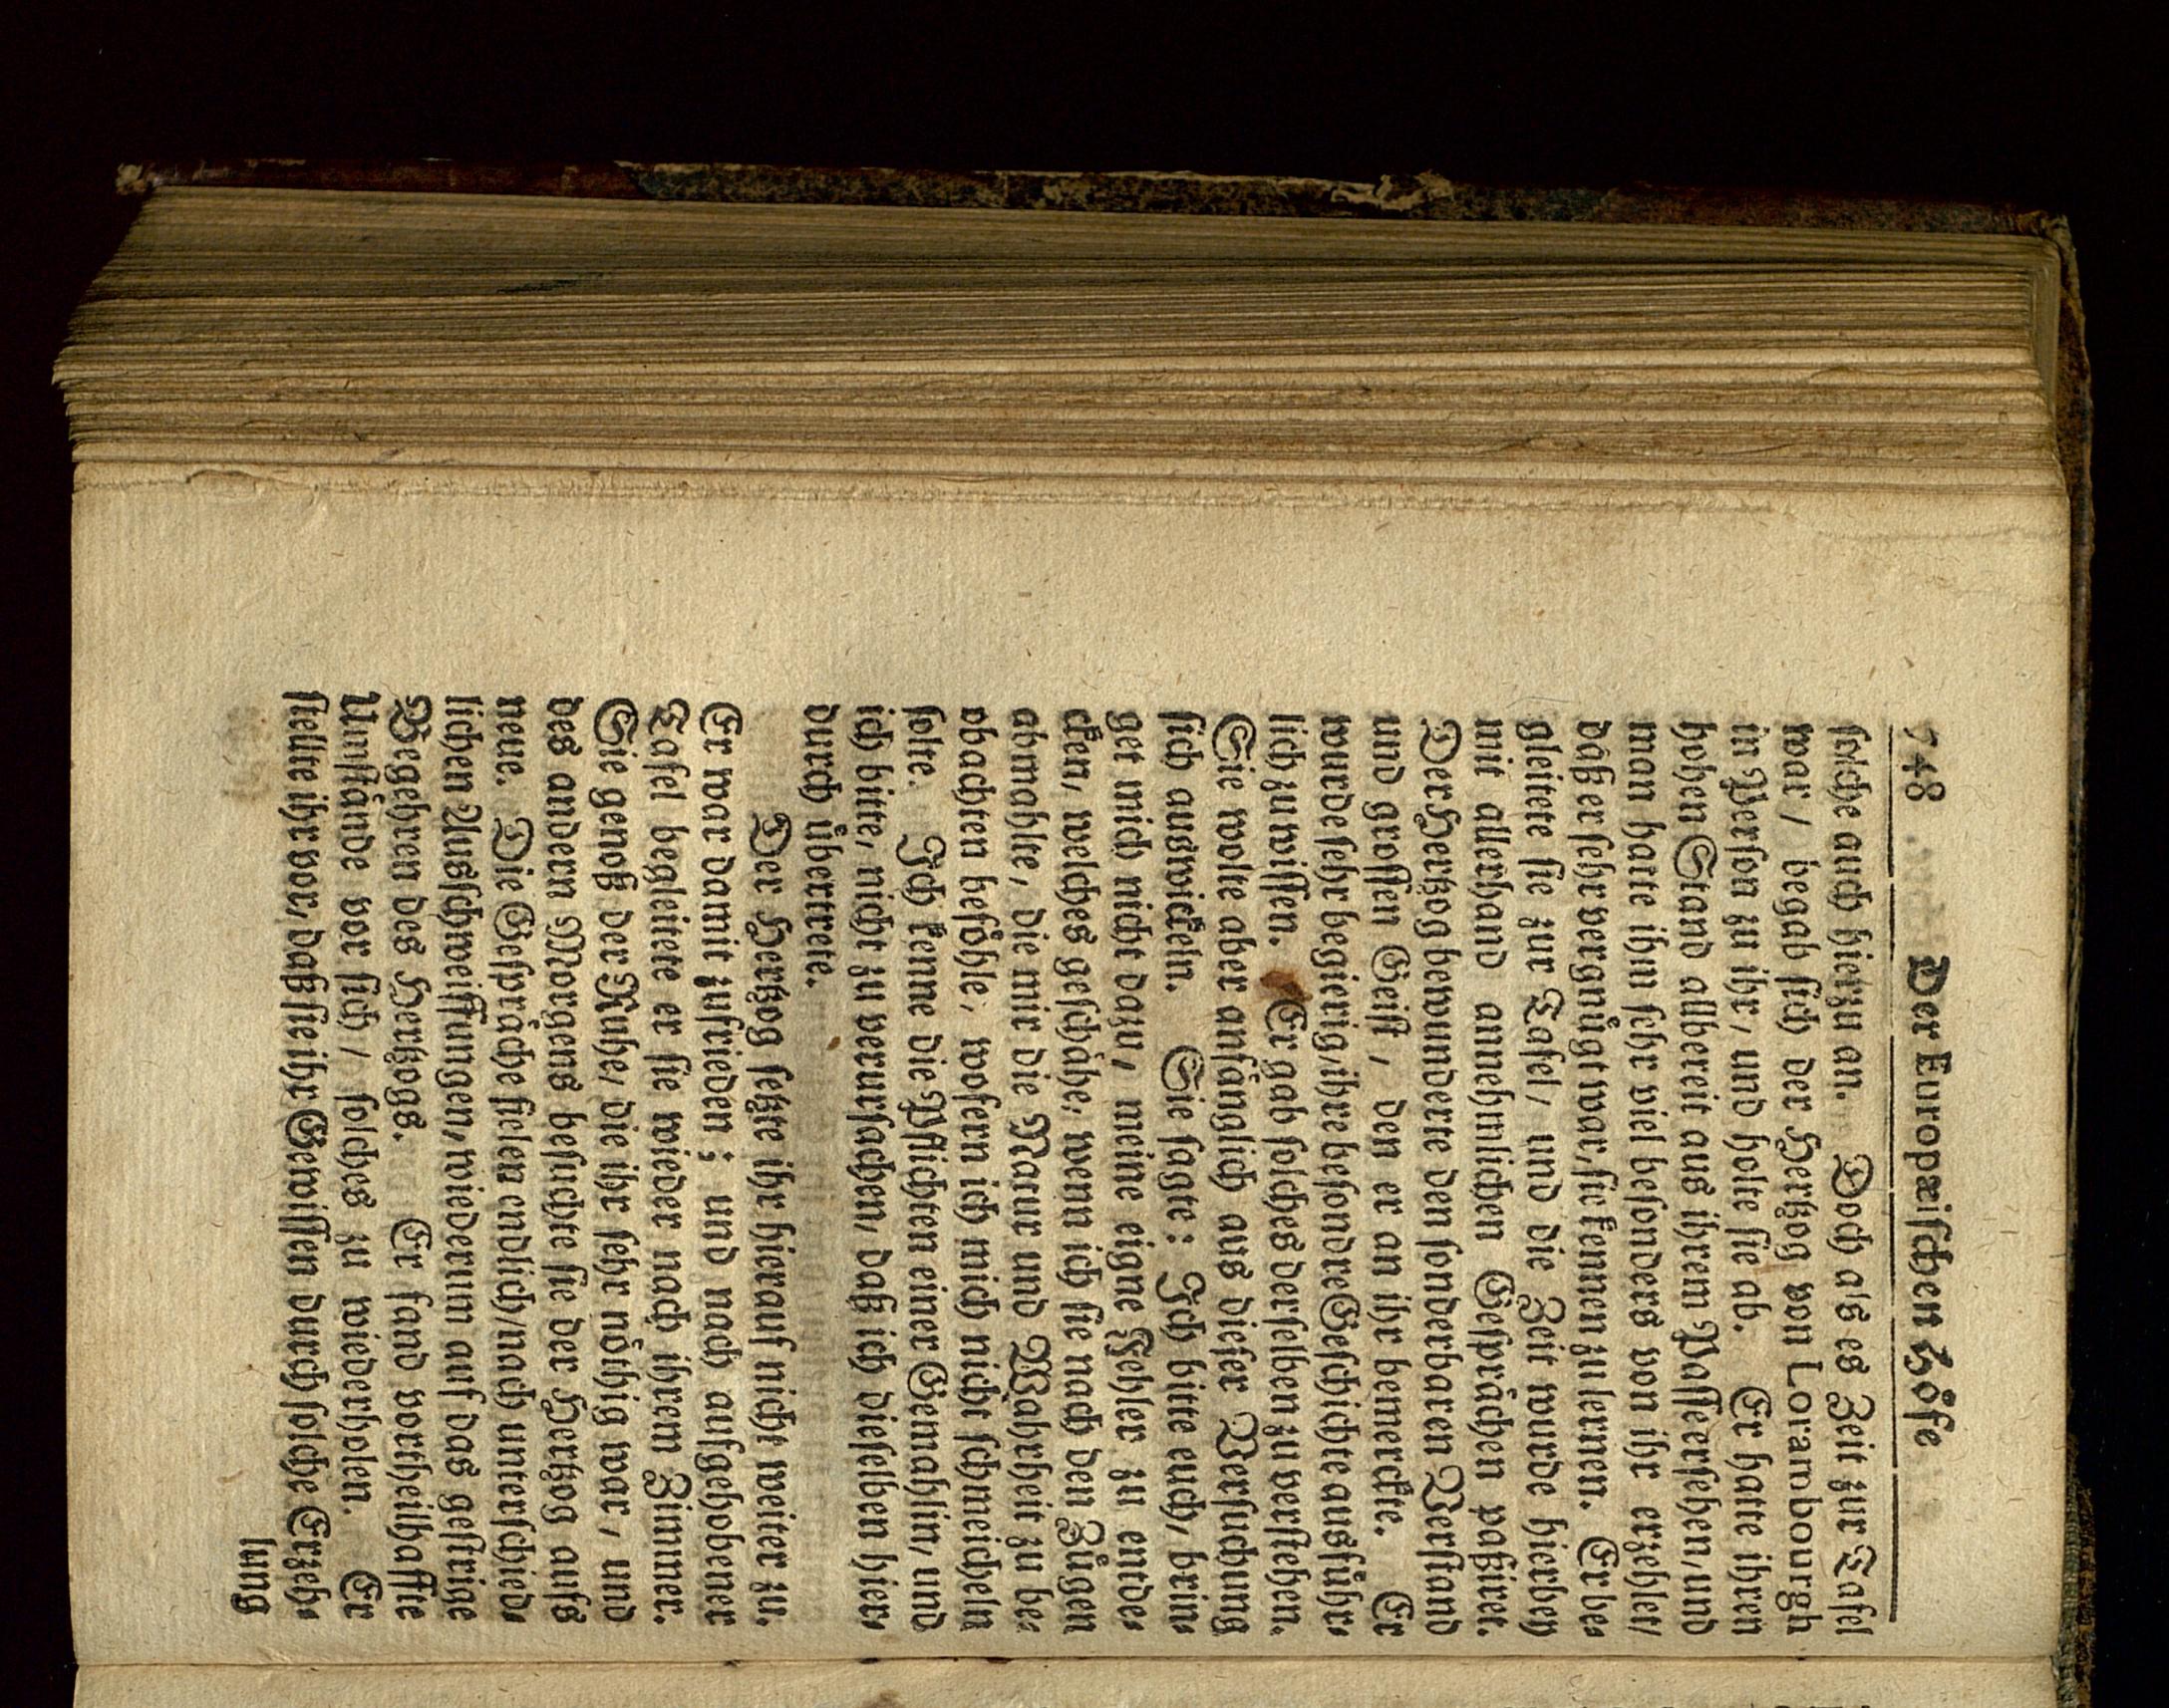 748 Der Europæiſchen Höfe
ſolche auch hierzu an. Doch als es Zeit zur Tafel
war / begab ſich der Hertzog von Lorambourgh
in Perſon zu ihr, und holte ſie ab. Er hatte ihren
hohen Stand allbereit aus ihrem Paſſe erſehen, und
man hatte ihm ſehr viel beſonders von ihr erzehlet/
daß er ſehr vergnügt war, ſie kennen zu lernen. Er be⸗
gleitete ſie zur Tafel, und die Zeit wurde hierbey
mit allerhand annehmlichen Geſprächen paßiret.
Der Hertzog bewunderte den ſonderbaren Verſtand
und groſſen Geiſt, den er an ihr bemerckte. Er
wurde ſehr begierig, ihre beſondre Geſchichte ausführ⸗
lich zu wiſſen. Er gab ſolches derſelben zu verſtehen.
Sie wolte aber anfänglich aus dieſer Verſuchung
ſich auswickeln. Sie ſagte: Ich bitte euch, brin⸗
get mich nicht dazu, meine eigne Fehler zu entde⸗
cken, welches geſchähe, wenn ich ſie nach den Zügen
abmahlte, die mir die Natur und Wahrheit zu be⸗
obachten beföhle, wofern ich mich nicht ſchmeicheln
ſolte. Ich kenne die Pflichten einer Gemahlin, und
ich bitte, nicht zu verurſachen, daß ich dieſelben hier⸗
durch übertrete.
Der Hertzog ſetzte ihr hierauf nicht weiter zu.
Er war damit zufrieden; und nach aufgehobener
Tafel begleitete er ſie wieder nach ihrem Zimmer.
Sie genoß der Ruhe, die ihr ſehr nöthig war, und
des andern Morgens beſuchte ſie der Hertzog aufs
neue. Die Geſpräche fielen endlich, nach unterſchied⸗
lichen Ausſchweiffungen, wiederum auf das geſtrige
Begehren des Hertzogs. Er fand vortheilhaffte
Umſtände vor ſich, ſolches zu wiederholen. Er
ſtellte ihr vor, daß ſie ihr Gewiſſen durch ſolche Erzeh⸗
lung